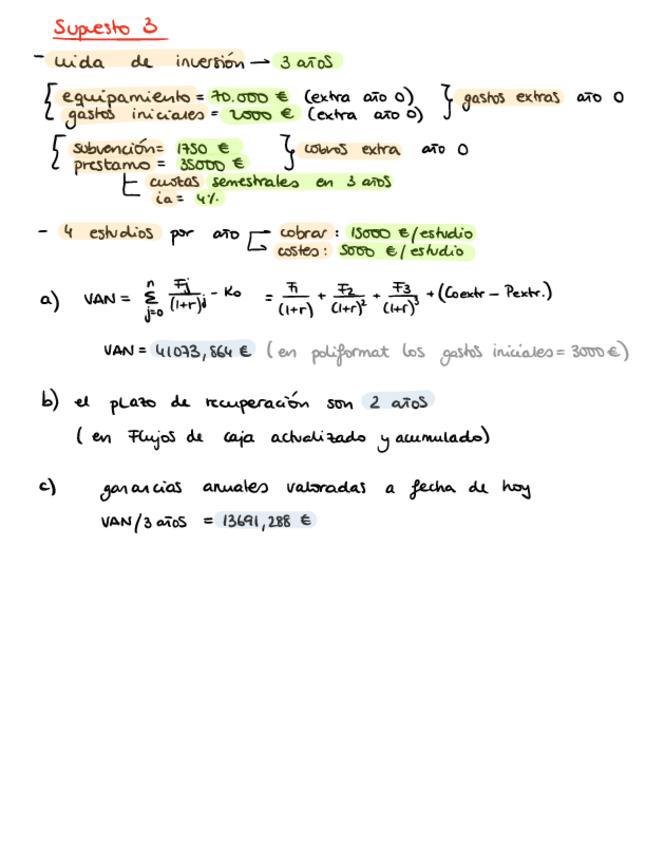 Supuesto 3
- vida de inversión → 3 años
{ equipamiento = 70.000 € (extra año 0) } gastos extras año 0
gastos iniciales = 2000 € (extra año 0)
{ subvención = 1750 € } cobros extra año 0
prestamo = 35000 €
cuotas semestrales en 3 años
ia = 4%
- 4 estudios por año cobrar : 15000 €/estudio
costes : 5000 €/estudio
a) VAN = Σ_{j=0}^{n} Fj/(1+r)^j - K0 = F1/(1+r) + F2/(1+r)^2 + F3/(1+r)^3 + (Coextr - Pextr.)
VAN = 41073,864 € (en poliformat los gastos iniciales = 3000 €)
b) el plazo de recuperación son 2 años
(en Flujos de caja actualizado y acumulado)
c) ganancias anuales valoradas a fecha de hoy
VAN/3 años = 13691,288 €